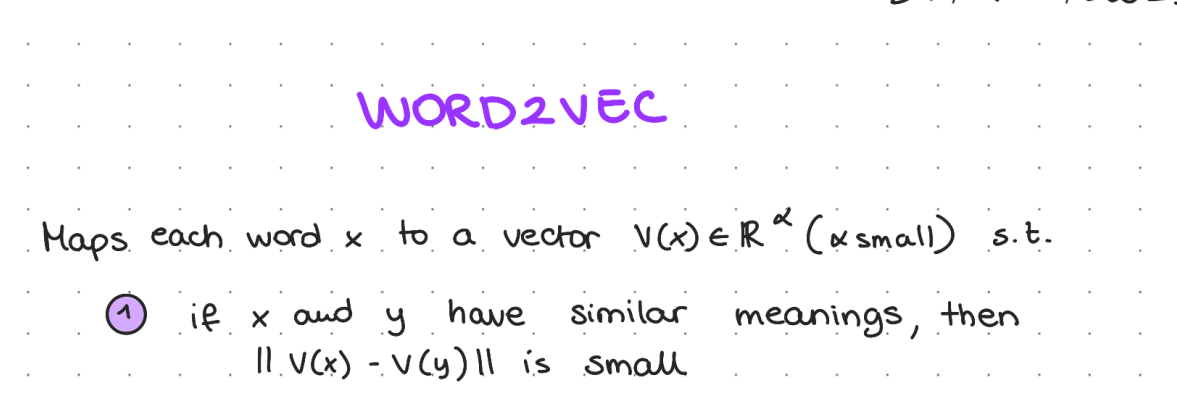 WORD2VEC
Maps each word x to a vector V(x) ∈ ℝ^α (α small) s.t.
① if x and y have similar meanings, then
|| V(x) - V(y) || is small